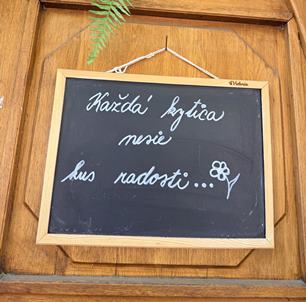 Každá kytica
nesie
kus radosti...